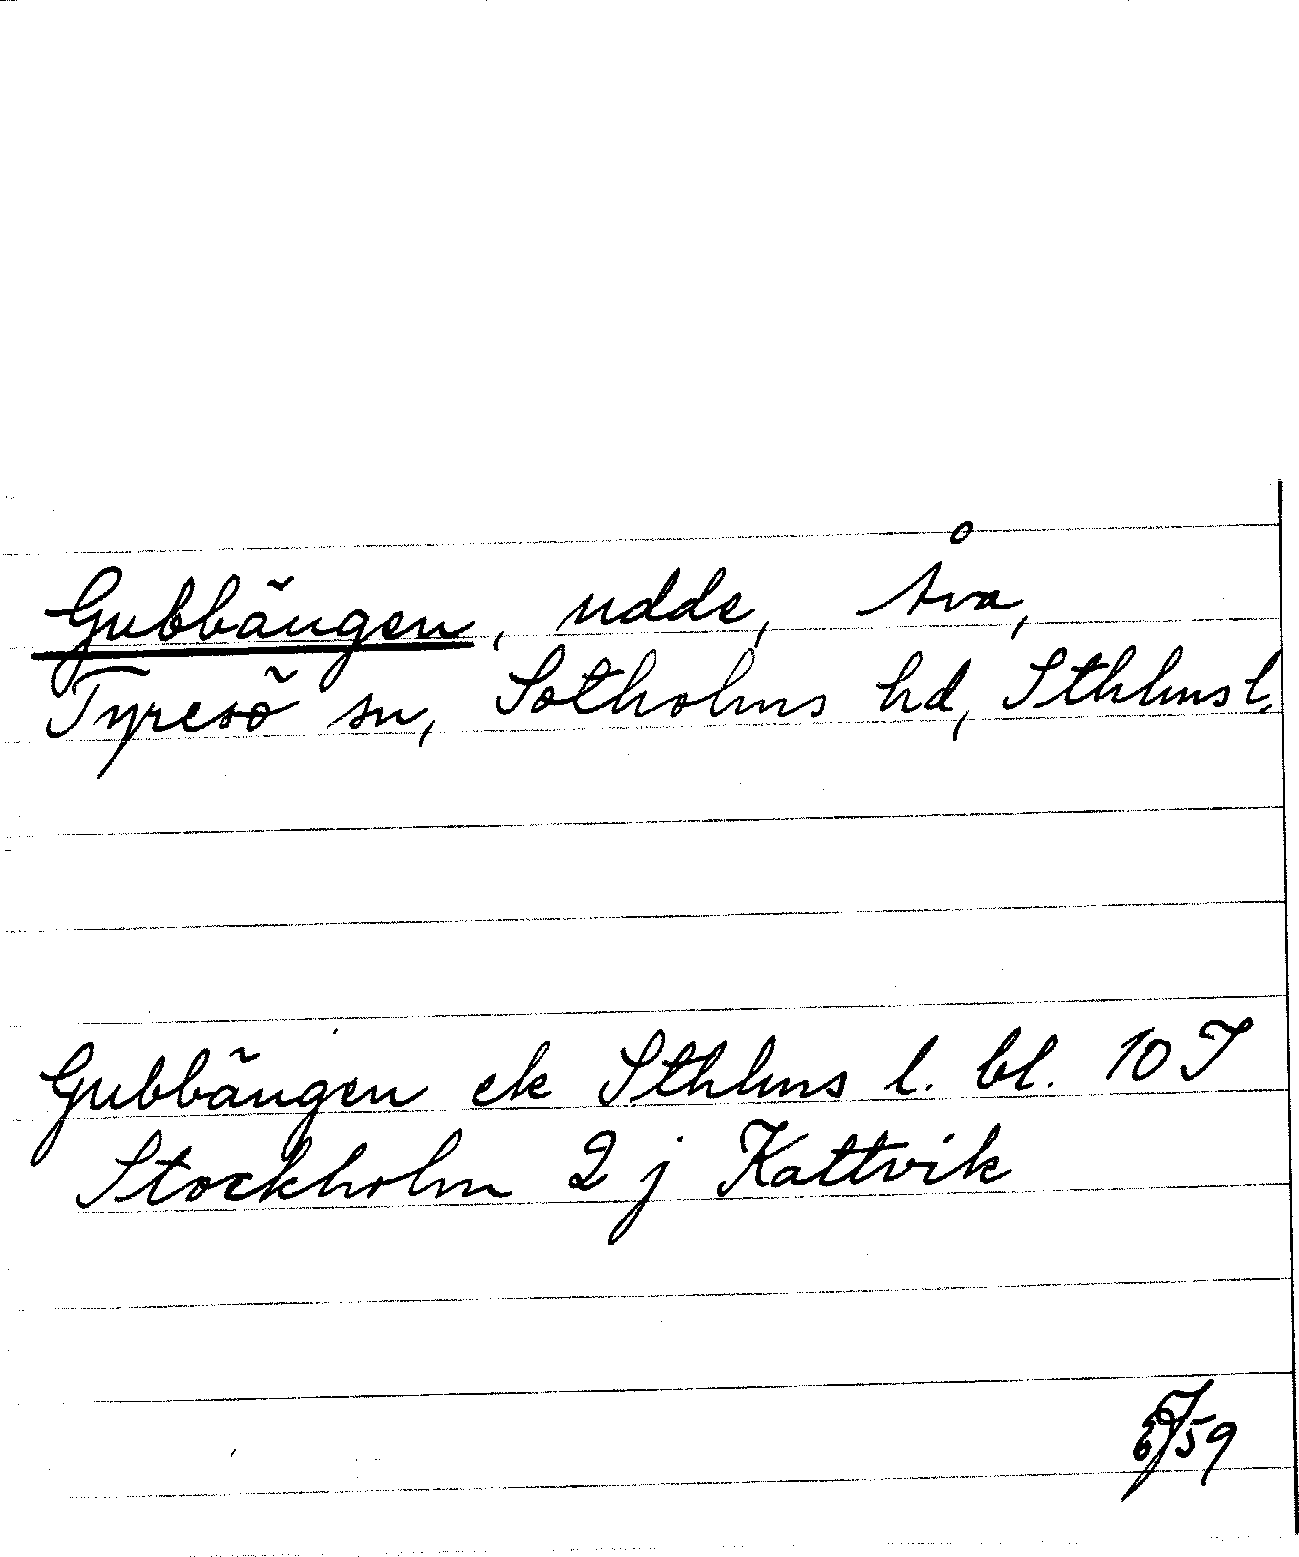 Gubbängen, udde, Åva,
Tyresö sn, Sotholms hd, Sthlms l.
Gubbängen ek Sthlms l. bl. 10 I
Stockholm 2 j Kattvik
59